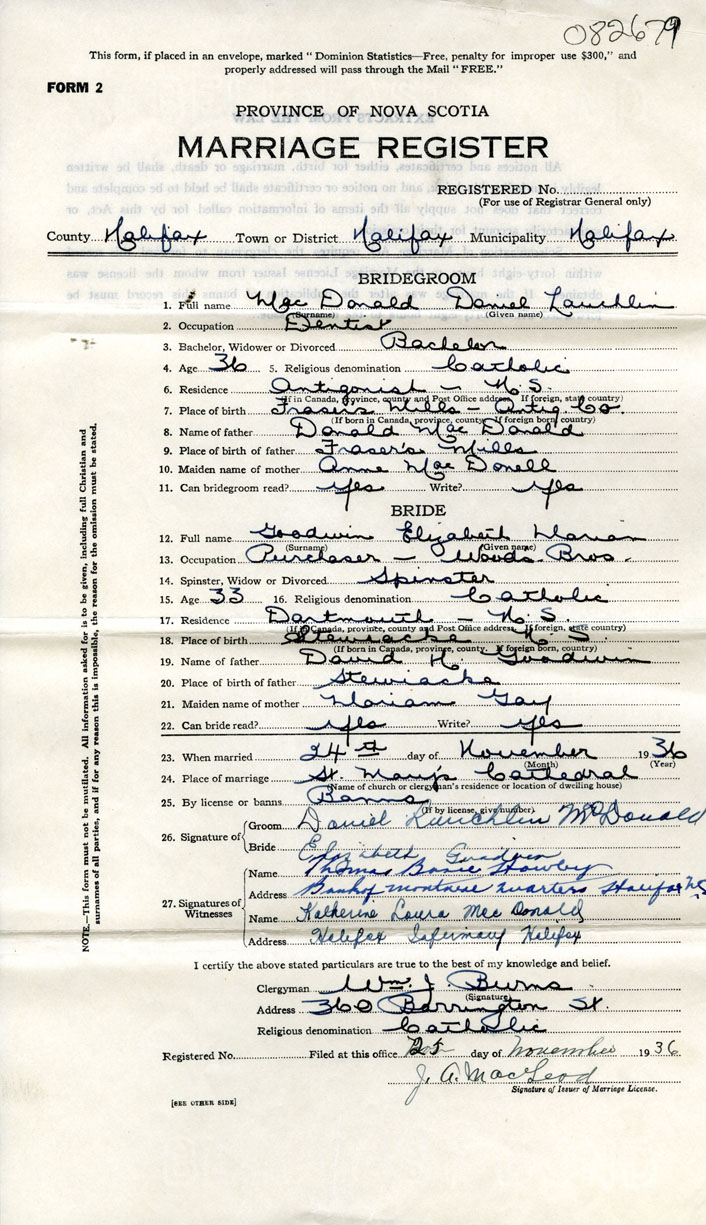 082679
This form, if placed in an envelope, marked "Dominion Statistics—Free, penalty for improper use $300," and
properly addressed will pass through the Mail "FREE."
FORM 2
PROVINCE OF NOVA SCOTIA
MARRIAGE REGISTER
REGISTERED No.
(For use of Registrar General only)
County Halifax Town or District Halifax Municipality Halifax
BRIDEGROOM
1. Full name Mac Donald Daniel Lauchlin
(Surname) (Given name)
2. Occupation Dentist
3. Bachelor, Widower or Divorced Bachelor
4. Age 36 5. Religious denomination Catholic
6. Residence Antigonish — N.S.
(If in Canada, province, county and Post Office address. If foreign, state country)
7. Place of birth Frasers Mills — Antig. Co.
(If born in Canada, province, county. If foreign born, country)
8. Name of father Donald Mac Donald
9. Place of birth of father Fraser's Mills
10. Maiden name of mother Anne Mac Donell
11. Can bridegroom read? yes Write? yes
BRIDE
12. Full name Goodwin Elizabeth Marian
(Surname) (Given name)
13. Occupation Purchaser — Woods Bros.
14. Spinster, Widow or Divorced Spinster
15. Age 33 16. Religious denomination Catholic
17. Residence Dartmouth — N.S.
(If in Canada, province, county and Post Office address. If foreign, state country)
18. Place of birth Stewiacke N.S.
(If born in Canada, province, county. If foreign born, country)
19. Name of father David H. Goodwin
20. Place of birth of father Stewiacke
21. Maiden name of mother Mariam Gay
22. Can bride read? yes Write? yes
23. When married 24th day of November 1936
(Month) (Year)
24. Place of marriage St. Mary's Cathedral
(Name of church or clergyman's residence or location of dwelling house)
25. By license or banns Banns
(If by license, give number)
26. Signature of Groom Daniel Lauchlin McDonald
Bride Elizabeth Goodwin
27. Signatures of Witnesses
Name Thomas Basil
Address Bank of Montreal Quarters Halifax NS
Name Katherine Laura Mac Donald
Address Halifax Infirmary Halifax
I certify the above stated particulars are true to the best of my knowledge and belief.
Clergyman Wm. J. Burns
(Signature)
Address 360 Barrington St.
Religious denomination Catholic
Registered No. Filed at this office 25 day of November 1936
J. A. MacLeod
Signature of Issuer of Marriage License.
[SEE OTHER SIDE]
NOTE.—This form must not be mutilated. All information asked for is to be given, including full Christian and
surnames of all parties, and if for any reason this is impossible, the reason for the omission must be stated.